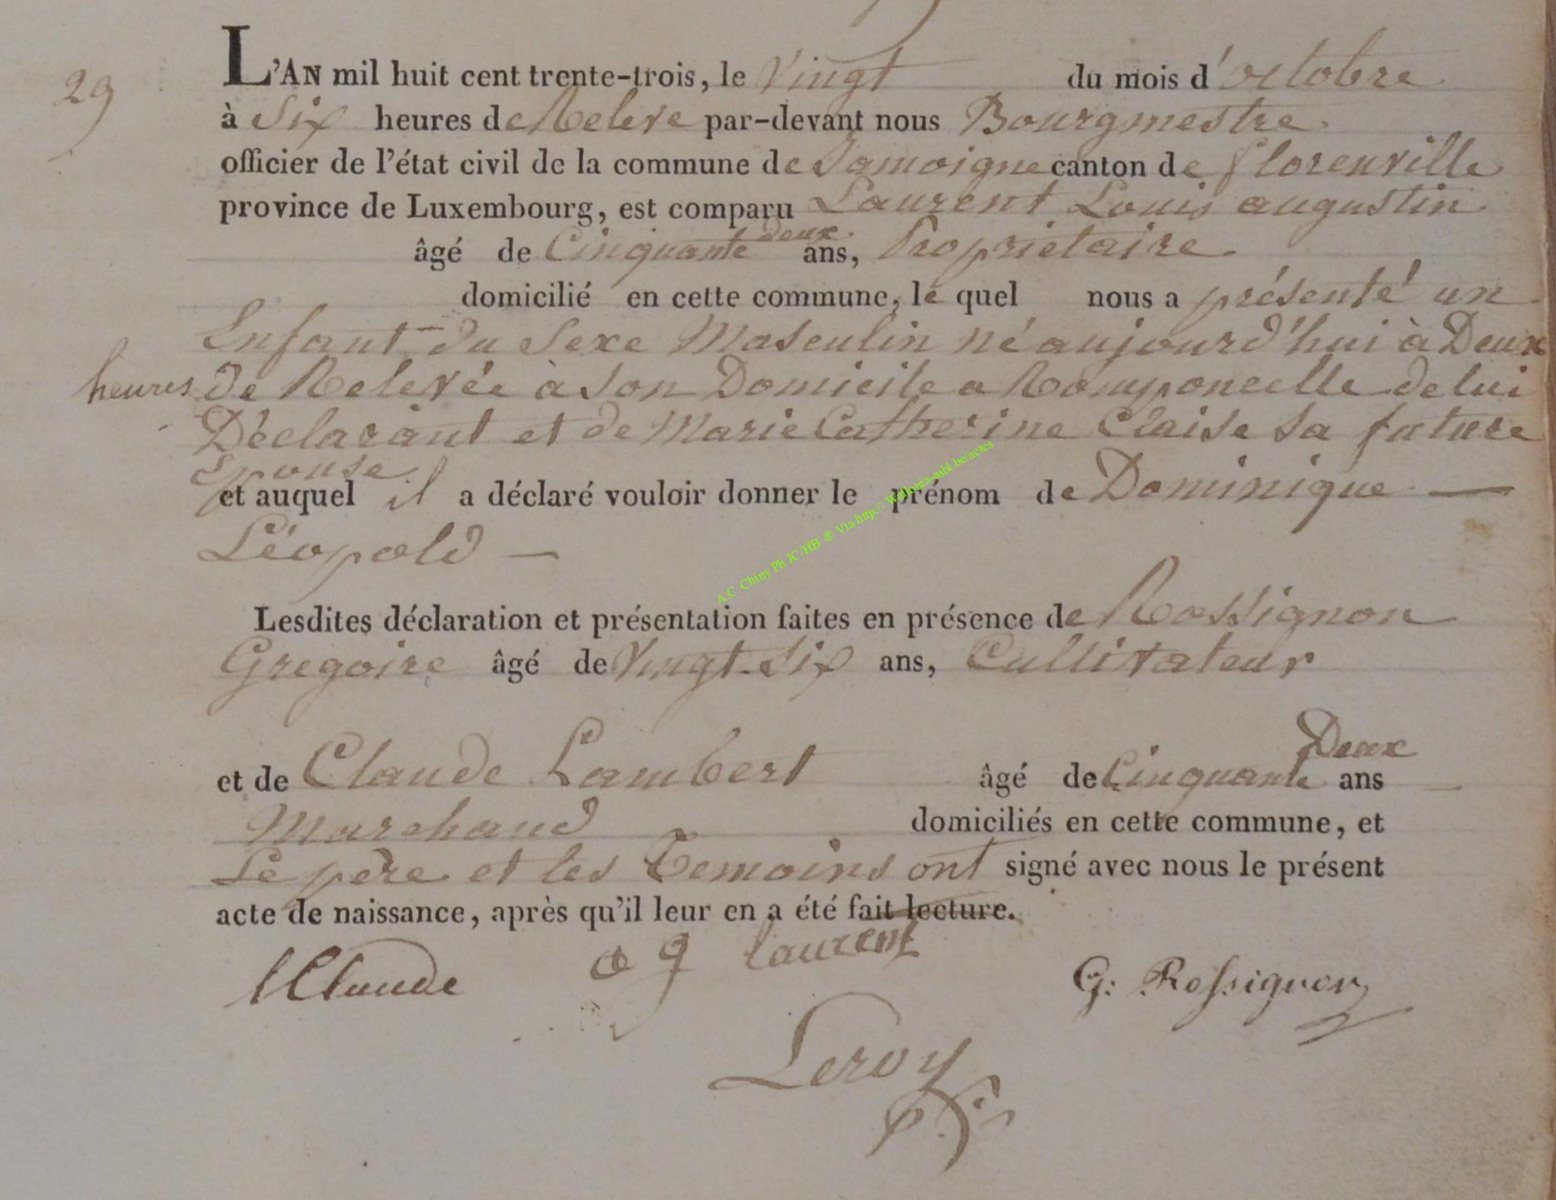 29
L'AN mil huit cent trente-trois, le Vingt du mois d'octobre
à Six heures de Releve par-devant nous Bourgmestre
officier de l'état civil de la commune de Jamoigne canton de florenville
province de Luxembourg, est comparu Laurent Louis augustin
deux
âgé de Cinquante ans, Proprietaire
domicilié en cette commune, le quel nous a présenté un
Enfant du Sexe Masculin né aujourd'hui à Deux
heures de Relevée à Son Domicile a Romponcelle de lui
Déclarant et de Marie Catherine Claise sa future
Epouse
et auquel il a déclaré vouloir donner le prénom de Dominique —
Léopold —
Lesdites déclaration et présentation faites en présence de Rossignon
Gregoire âgé de Vingt-Six ans, Cultivateur
Deux
et de Claude Lambert âgé de Cinquante ans
Marchand domiciliés en cette commune, et
Le père et les Temoins ont signé avec nous le présent
acte de naissance, après qu'il leur en a été fait lecture.
lClaude laurent G: Rossignon
Leroy
A.C. Chiny Ph JC/HB ® Via http:// Wallonia-asbl.be/actes